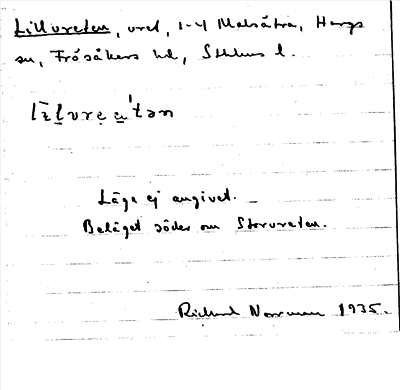 Lillvreten, vret, 1-4 Malsätra, Hargs
sn, Frösåkers hd, Sthlms l.
Läge ej angivet. –
Beläget söder om Storvreten.
Richard Norrman 1935.